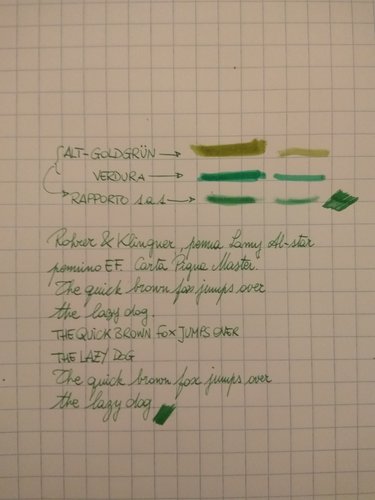 ALT-GOLDGRÜN
VERDURA
RAPPORTO 1 a 1
Rohrer & Klingner, penna Lamy Al-star
pennino EF. Carta Pigna Master.
The quick brown fox jumps over
the lazy dog.
THE QUICK BROWN FOX JUMPS OVER
THE LAZY DOG
The quick brown fox jumps over
the lazy dog